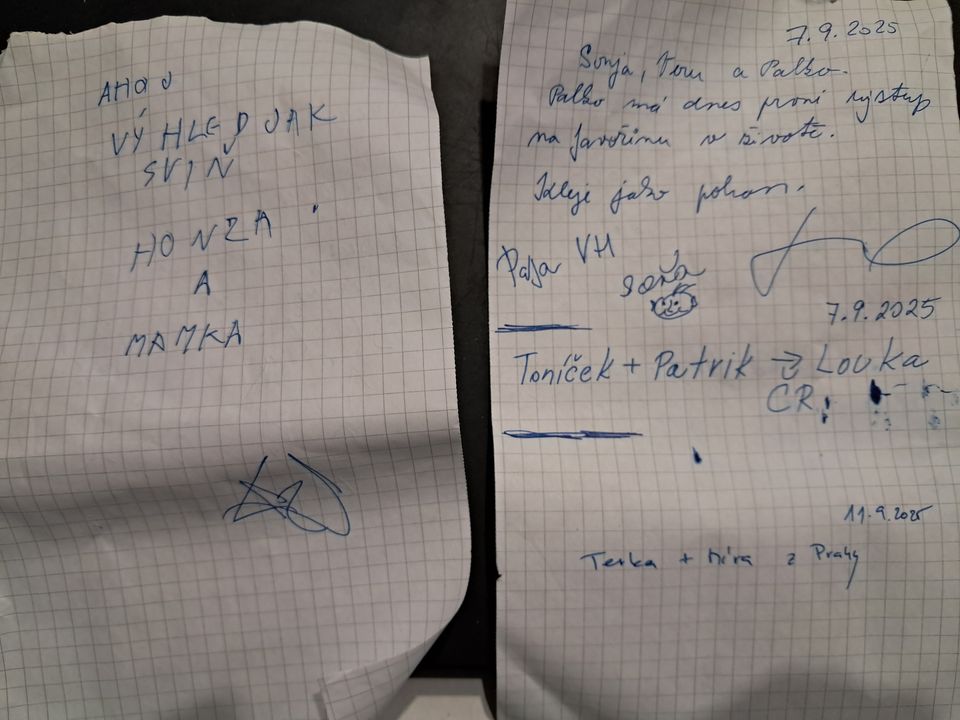 AHOJ
VÝHLED JAK
SVIŇ
HONZA
A
MAMKA
7.9.2025
Sonja, a Palko.
Palko má dnes první výstup
na Javořinu v životě.
Kleje jako pohan.
Paja VH
Soňa
7.9.2025
Toníček + Patrik → Louka
ČR
11.9.2025
Terka + Míra z Prahy